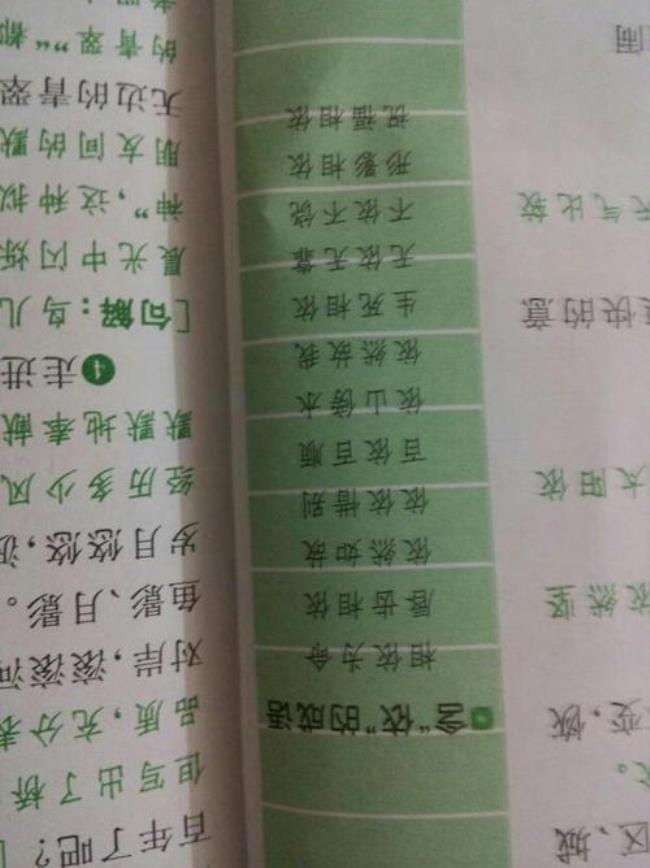 区、城
变，恢
依然坚
太阳依
快的意
天气比较
闹
含“依”的成语
相依为命
唇齿相依
依然如故
依依惜别
百依百顺
依山傍水
依然故我
生死相依
无依无靠
不依不饶
形影相依
祸福相依
百年了吧？
但写出了桥
品质，充分表
对岸，滚滚河
鱼影、月影。
岁月悠悠，波
经历多少风
默默地奉献
4 走进
[句解：鸟儿
晨光中闪烁
神”，这种拟
朋友间的默
无边的青翠
的青翠”“都